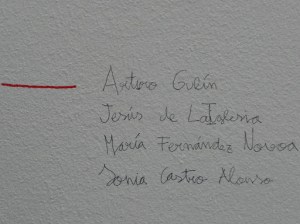 Arturo Guín
Jesús de LaIglesia
María Fernández Novoa
Sonia Castro Alonso